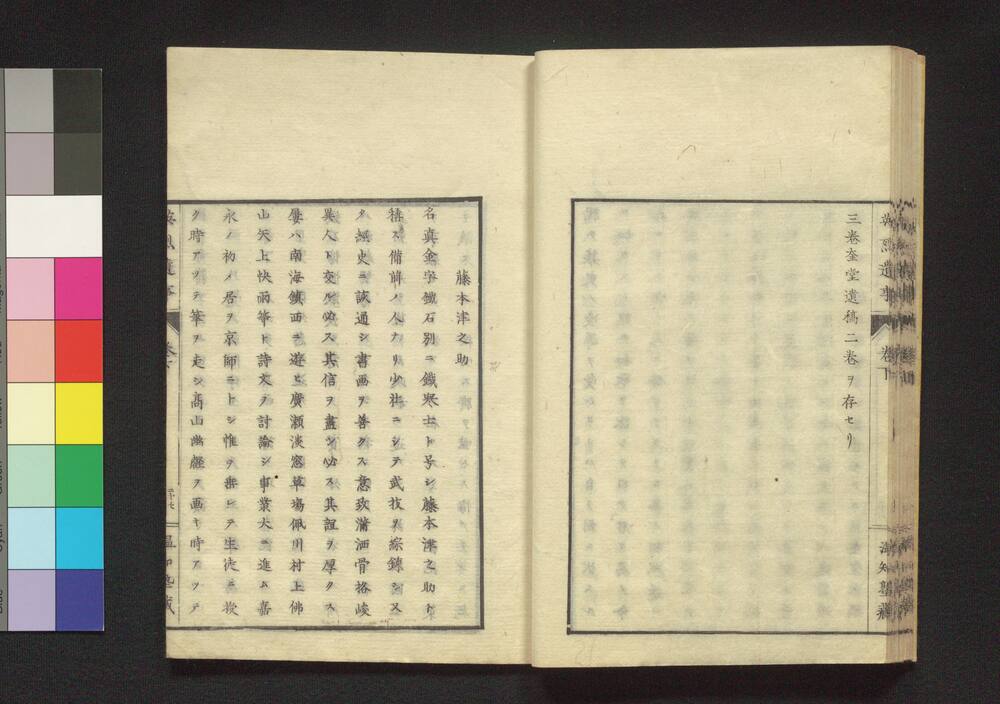 三巻奎堂遺稿二巻ヲ存セリ
遺事
卷下
温知塾藏
藤本津之助
名真金字鐵石別ニ鐵寒士ト号シ藤本津之助ト
稱ス備前ノ人ナリ少壮ニシテ武技ヲ綜錬シ又
夕經史ニ淹通シ書画ヲ善クス意致瀟洒骨格峻
異人ト交ル必ス其信ヲ盡シ必ス其誼ヲ厚クス
屡ハ南海鎮西ニ遊ヒ廣瀬淡窓草場佩川村上佛
山矢上快雨等ト詩文ヲ討論シ事業大ニ進ム嘉
永ノ初メ居ヲ京師ニトシ惟ヲ垂レテ生徒ニ授
ク時アツテ筆ヲ走シ高山幽壑ヲ画キ時アツテ